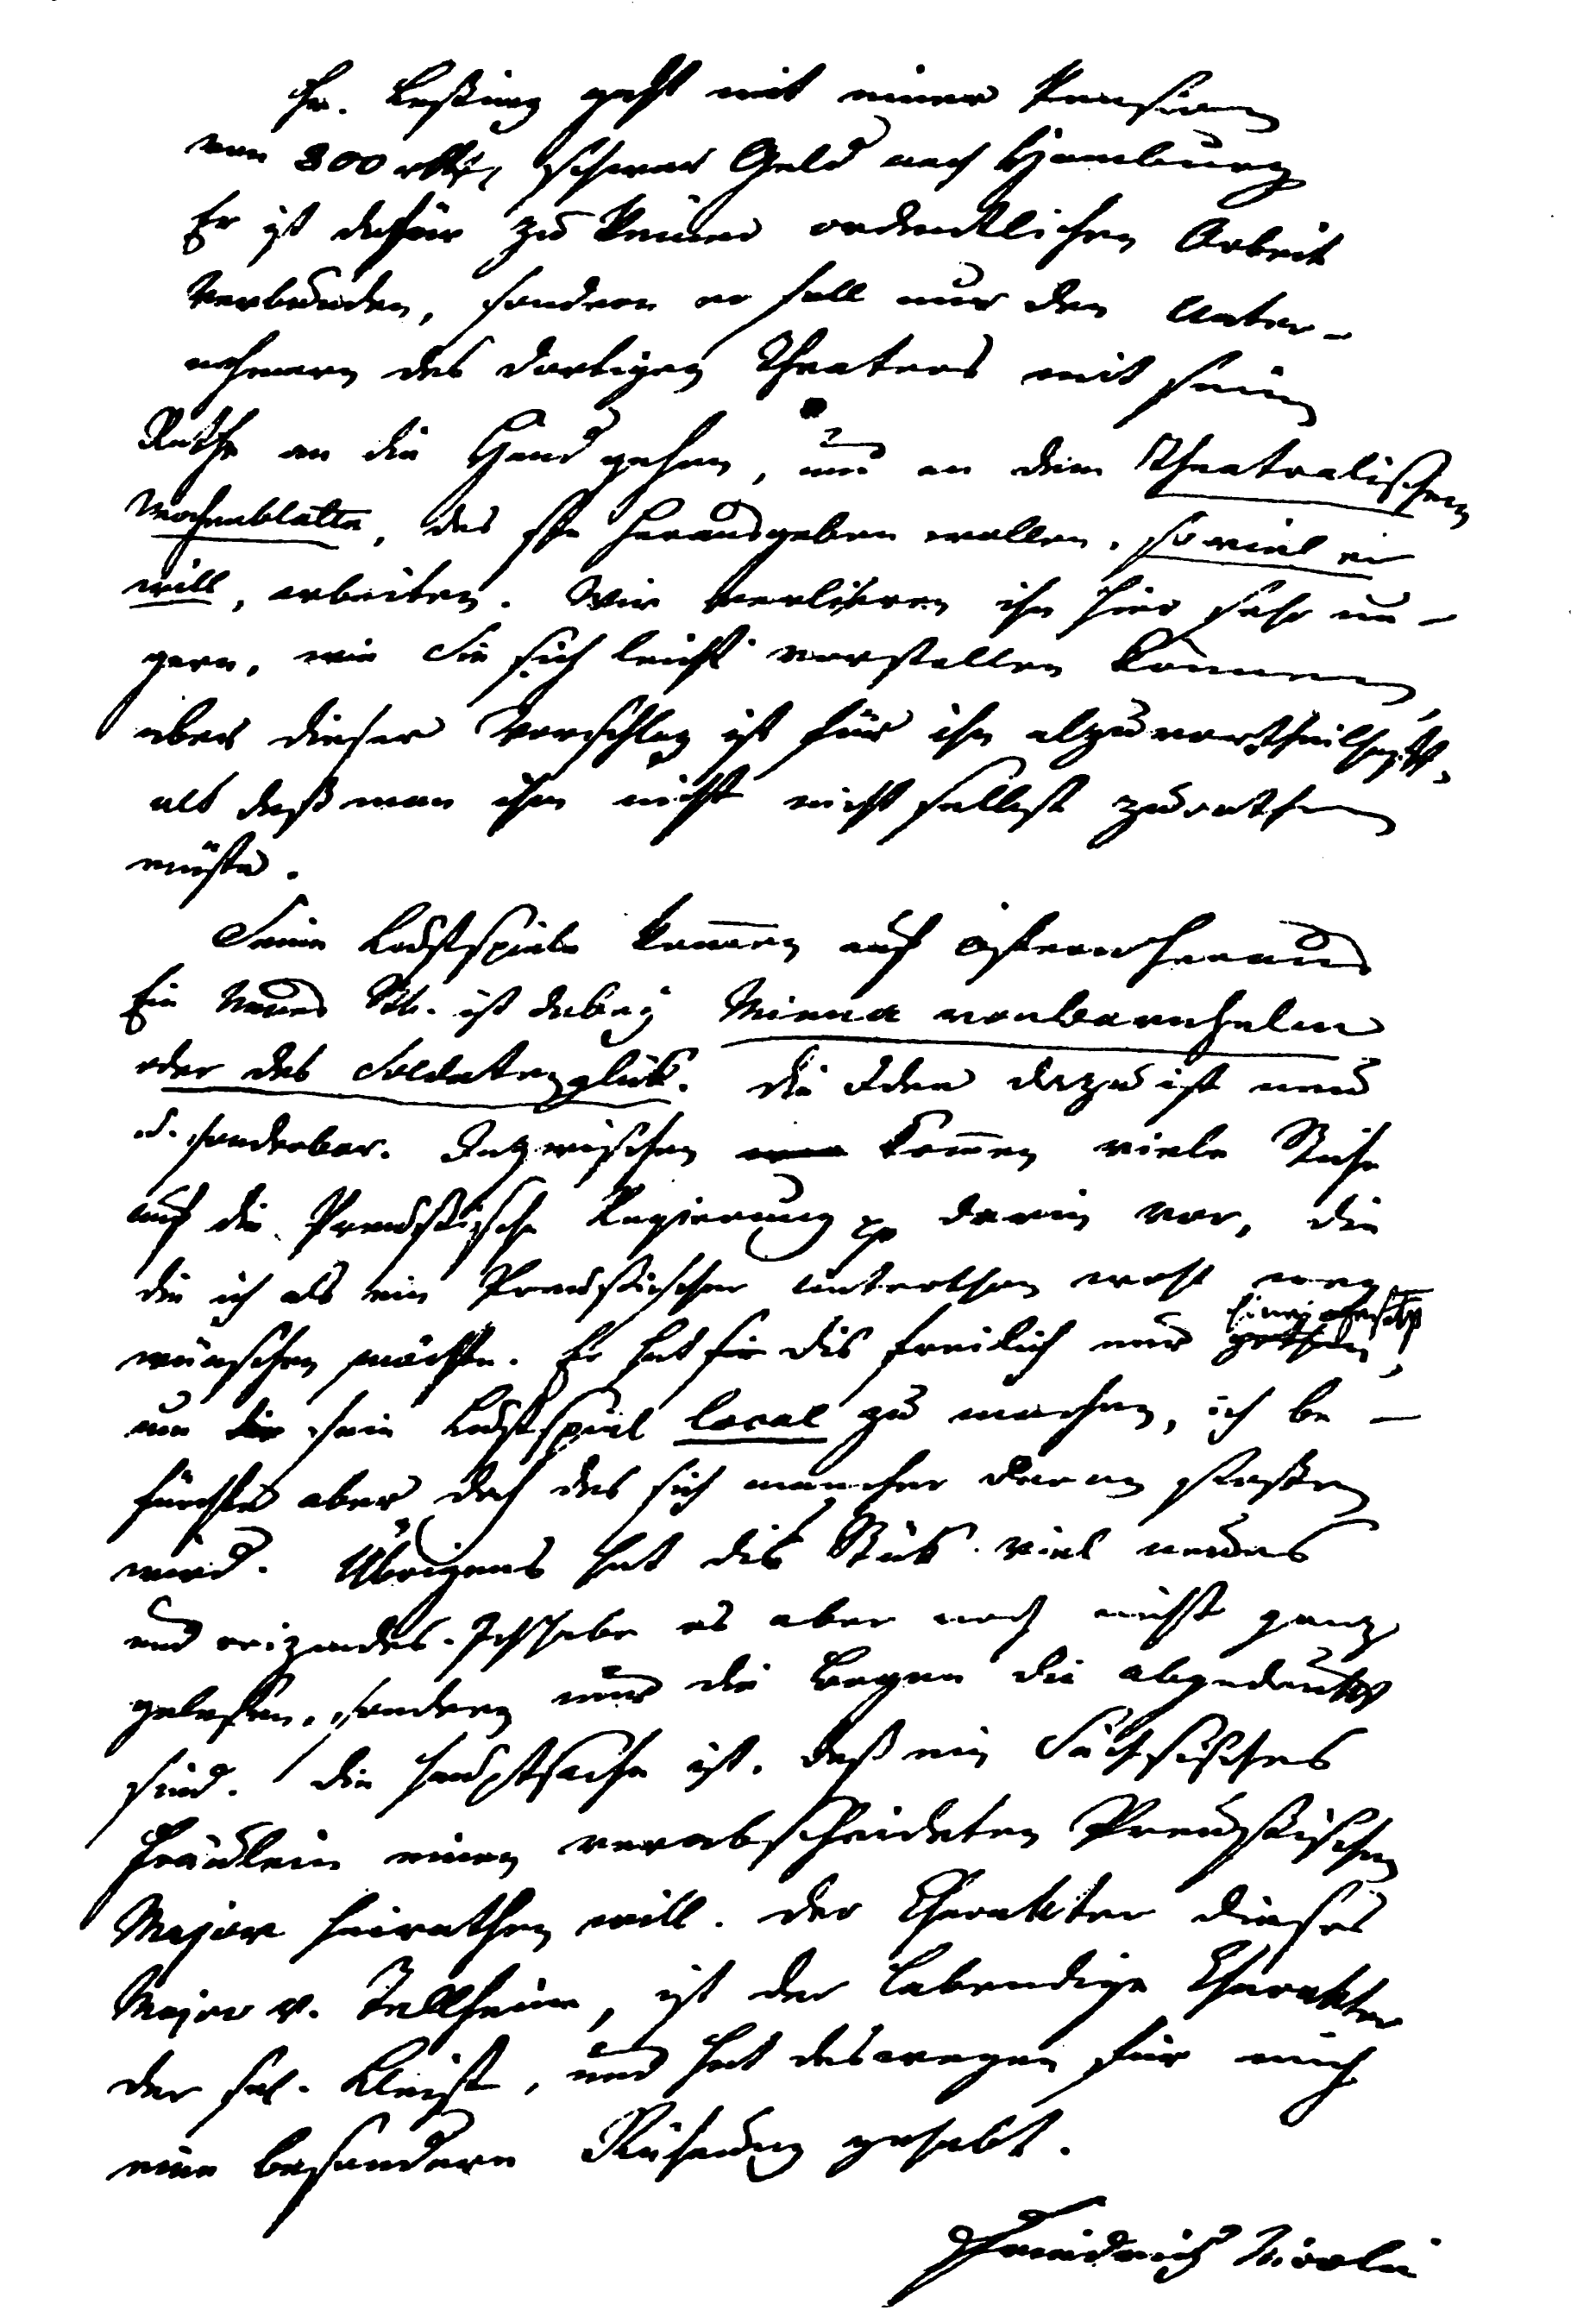 Hr. Leßing geht mit einer Pension
von 800 rthlr, schwer Geld nach Hamburg
Er ist dafür zu keiner ordentlichen Arbeit
verbunden, sondern er soll nur den Unter-
nehmern des dortigen Theaters mit sein
Rathe an die Hand gehen, und an dem Theatralischen
Wochenblatte, das sie herausgeben wollen, so viel er
will, arbeiten. Wir verlieren ihn hier sehr un-
gern, wie Sie sich leicht vorstellen können,
aber dieser Vorschlag ist für ihn alzuvortheilhafft,
als daß man ihm nicht nicht selbst zurathen
müste.
Seine Lustspiele kommen auf Ostern heraus
Ein Neues Stk. ist dabey Minna von Barnhelm
oder das Soldatenglük. Die Idee dazu ist neu
u. sonderbar. Inzwischen kommen viele Stiche
auf die Preußische Regierung pp darin vor, die
die ich als ein Preußischer Unterthan wohl weg
wünschen möchte. Er hat sie dis freilich nur hineingebracht
gethan,
um die sein Lustspiel local zu machen, ich be-
fürchte aber doch das sich mancher daran stoßen
wird. Übrigens hat dis Stük viel neues
und reizendes. Ich habe es aber noch nicht ganz
gelesen, sondern nur die Bogen die abgedrukt
sind. Die Hauptsache ist, daß ein Sächsisches
Fräulein einen verabscheideten Preußischen
Major heirathen will. Der Charakter dieses
Major v. Tellheim, ist der lebendige Charakter
der sel. Kleist, und hat deswegen für mich
eine besondern Rührung gehabt.
Friedrich Nicolai